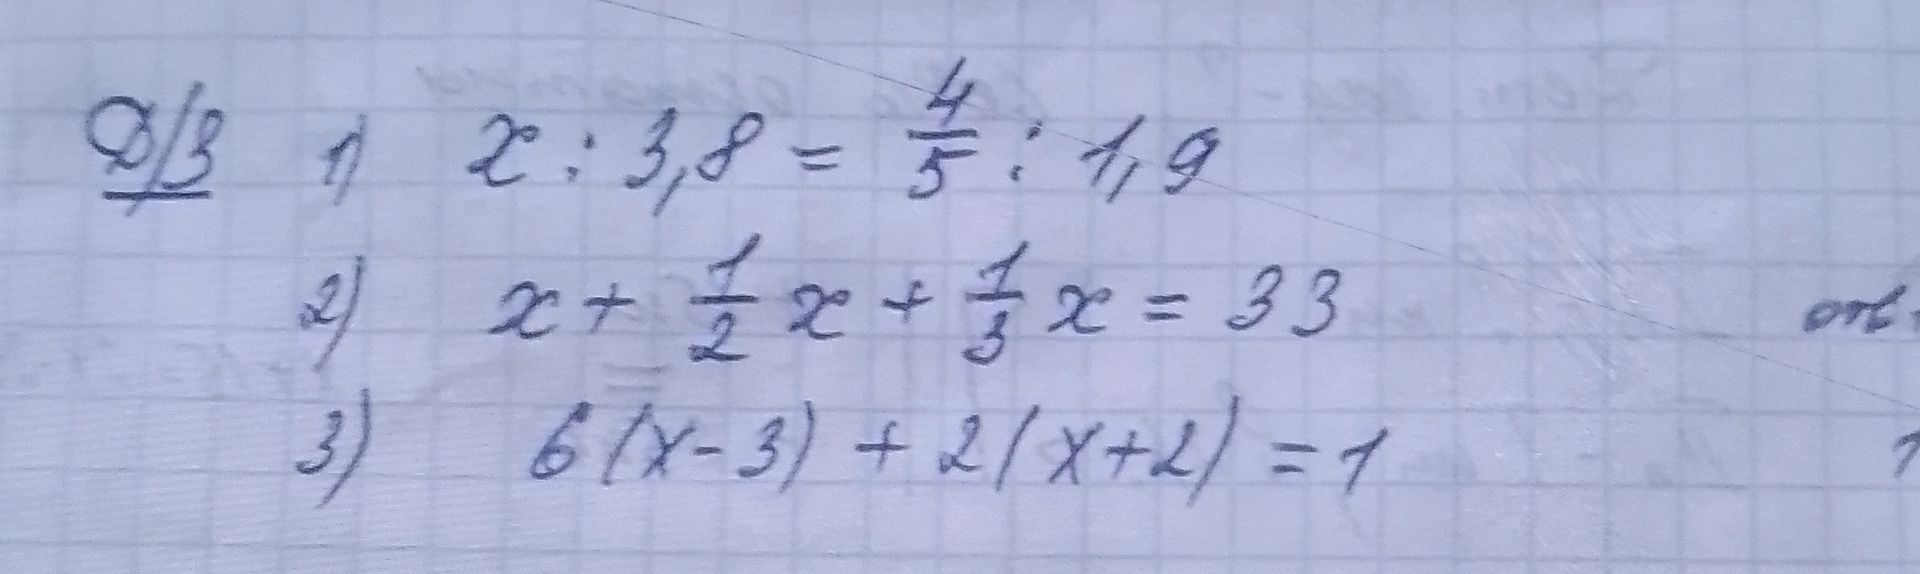 Д/З 1) x : 3,8 = 4/5 : 1,9
2) x + 1/2 x + 1/3 x = 33
3) 6(x-3) + 2(x+2) = 1